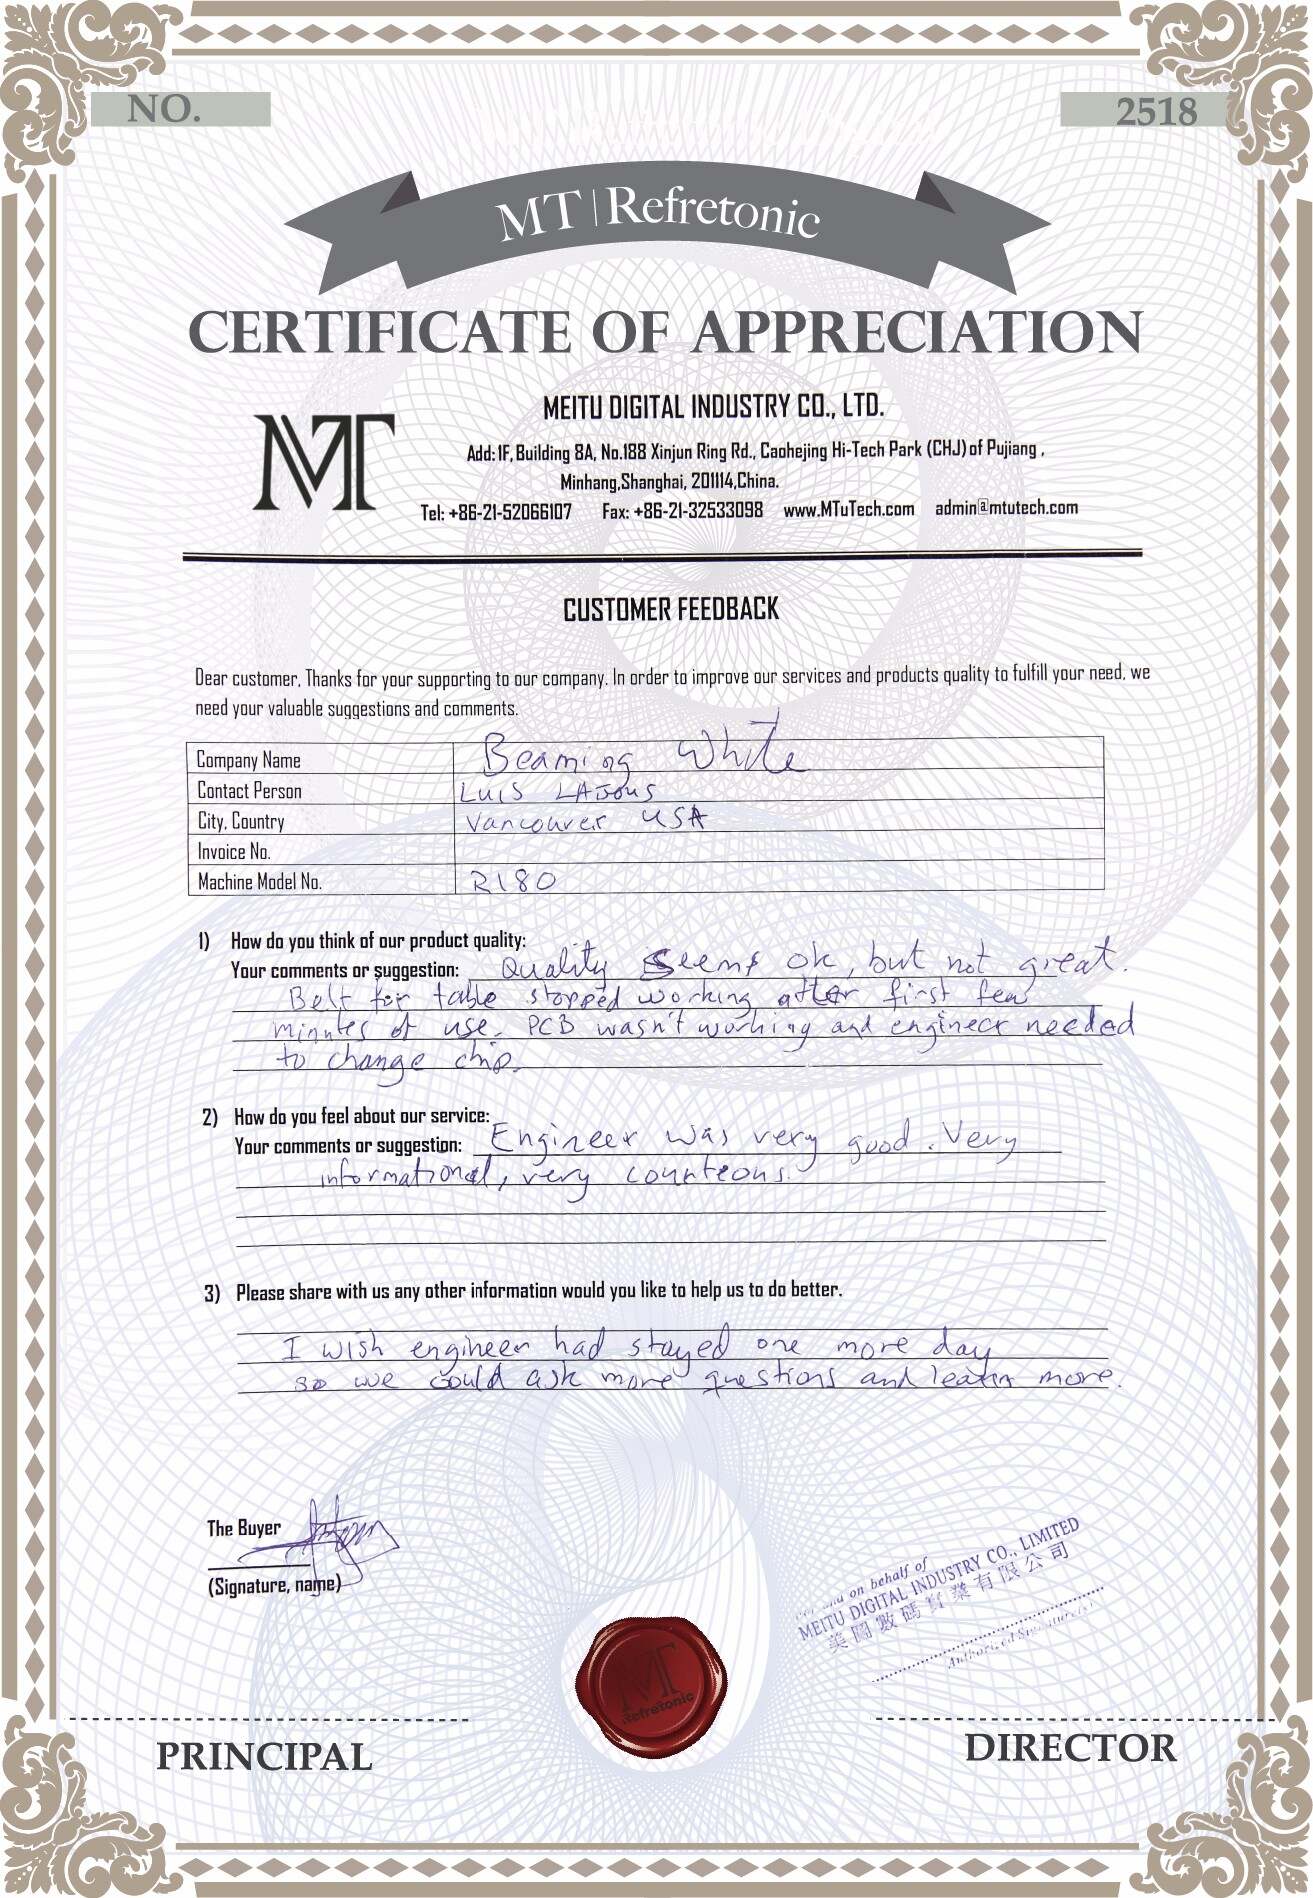 NO.
2518
MT | Refretonic
CERTIFICATE OF APPRECIATION
MT
MEITU DIGITAL INDUSTRY CO., LTD.
Add: 1F, Building 8A, No.188 Xinjun Ring Rd., Caohejing Hi-Tech Park (CHJ) of Pujiang ,
Minhang,Shanghai, 201114,China.
Tel: +86-21-52066107 Fax: +86-21-32533098 www.MTuTech.com admin@mtutech.com
CUSTOMER FEEDBACK
Dear customer, Thanks for your supporting to our company. In order to improve our services and products quality to fulfill your need, we
need your valuable suggestions and comments.
Company Name Beaming White
Contact Person LUIS LAJOUS
City, Country Vancouver USA
Invoice No.
Machine Model No. R180
1) How do you think of our product quality:
Your comments or suggestion: Quality seems ok, but not great.
Belt for table stopped working after first few
minutes of use. PCB wasn't working and engineer needed
to change chip.
2) How do you feel about our service:
Your comments or suggestion: Engineer was very good. Very
informational, very counteous.
3) Please share with us any other information would you like to help us to do better.
I wish engineer had stayed one more day
so we could ask more questions and learn more.
The Buyer
(Signature, name)
on behalf of
MEITU DIGITAL INDUSTRY CO., LIMITED
美圖數碼實業有限公司
MT
Refretonic
PRINCIPAL
DIRECTOR